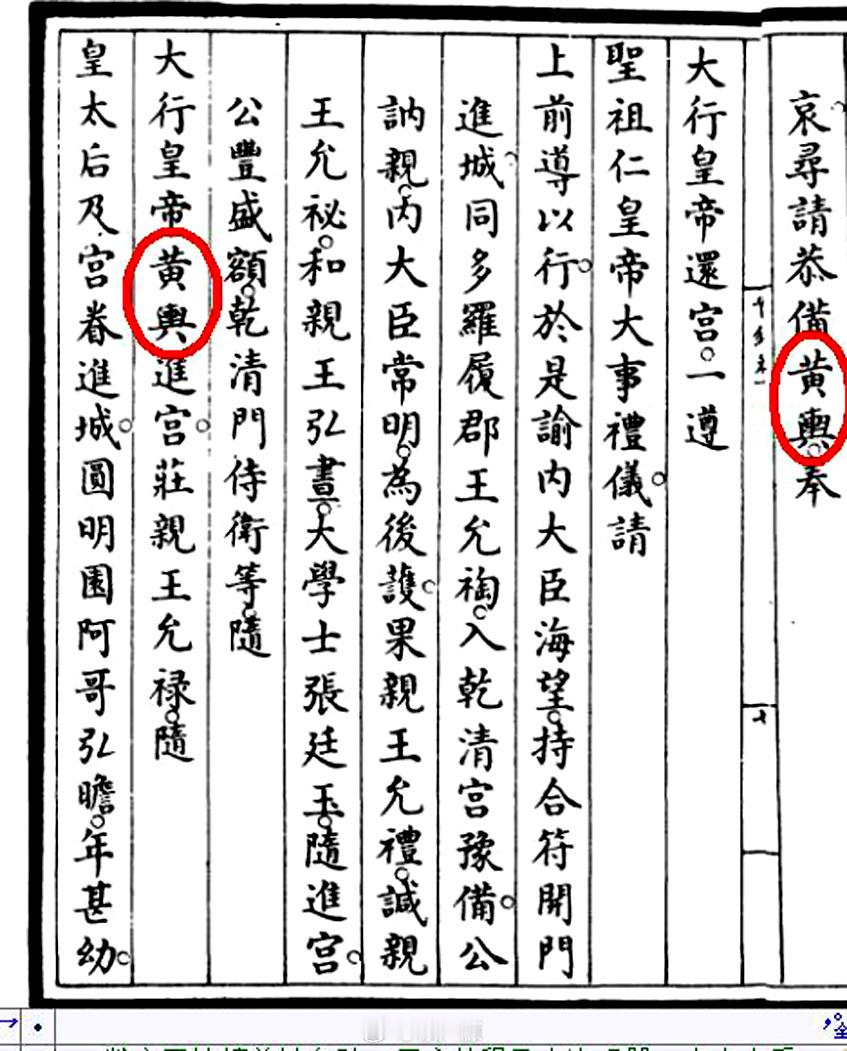 哀尋請恭備黃輿。奉
大行皇帝還宮。一遵
聖祖仁皇帝大事禮儀。請
上前導以行。於是諭內大臣海望。持合符開門
進城。同多羅履郡王允祹。入乾清宮豫備。公
訥親。內大臣常明。為後護。果親王允禮。諴親
王允祕。和親王弘晝。大學士張廷玉。隨進宮。
公豐盛額。乾清門侍衛等。隨
大行皇帝黃輿進宮。莊親王允祿。隨
皇太后及宮眷進城。圓明園阿哥弘瞻。年甚幼。